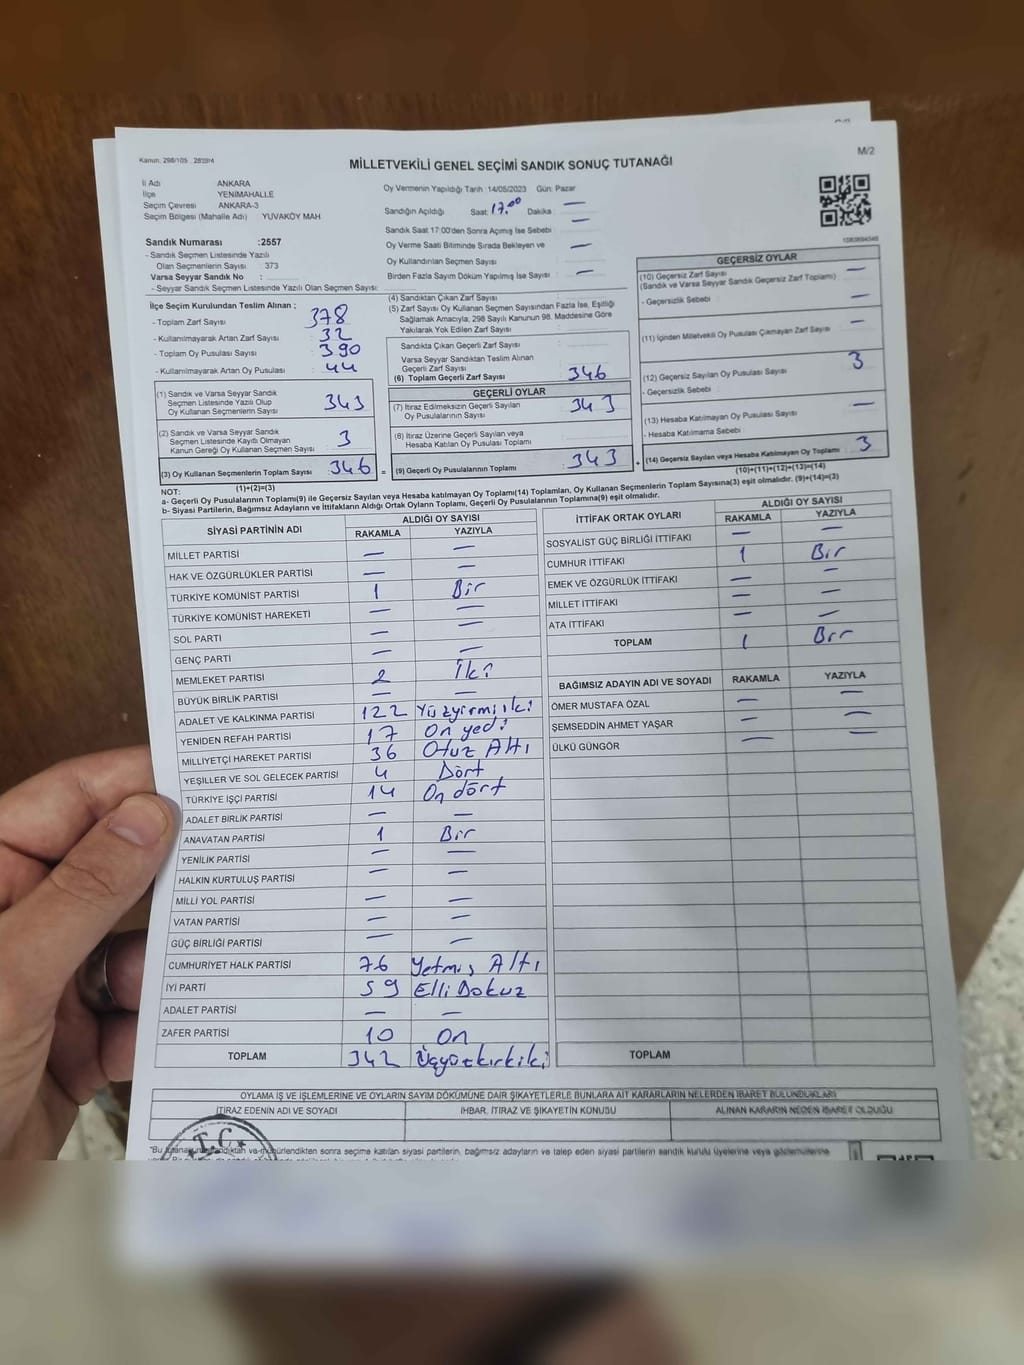 Kanun: 298/105
M/2
MİLLETVEKİLİ GENEL SEÇİMİ SANDIK SONUÇ TUTANAĞI
İli Adı ANKARA
İlçe YENİMAHALLE
Seçim Çevresi ANKARA-3
Seçim Bölgesi (Mahalle Adı) YUVAKÖY MAH
Sandık Numarası :2557
- Sandık Seçmen Listesinde Yazılı
Olan Seçmenlerin Sayısı 373
Varsa Seyyar Sandık No :
- Seyyar Sandık Seçmen Listesinde Yazılı Olan Seçmen Sayısı:
Oy Vermenin Yapıldığı Tarih :14/05/2023 Gün: Pazar
Sandığın Açıldığı Saat: 17.00 Dakika: —
Sandık Saat 17:00'den Sonra Açımış İse Sebebi : —
Oy Verme Saati Bitiminde Sırada Bekleyen ve
Oy Kullandırılan Seçmen Sayısı —
Birden Fazla Sayım Döküm Yapılmış İse Sayısı : —
İlçe Seçim Kurulundan Teslim Alınan ;
- Toplam Zarf Sayısı 378
- Kullanılmayarak Artan Zarf Sayısı 32
- Toplam Oy Pusulası Sayısı 390
- Kullanılmayarak Artan Oy Pusulası 44
(1) Sandık ve Varsa Seyyar Sandık
Seçmen Listesinde Yazılı Olup
Oy Kullanan Seçmenlerin Sayısı 343
(2) Sandık ve Varsa Seyyar Sandık
Seçmen Listesinde Kayıtlı Olmayan
Kanun Gereği Oy Kullanan Seçmen Sayısı 3
(3) Oy Kullanan Seçmenlerin Toplam Sayısı 346 =
(1)+(2)=(3)
(4) Sandıktan Çıkan Zarf Sayısı
(5) Zarf Sayısı Oy Kullanan Seçmen Sayısından Fazla İse, Eşitliği
Sağlamak Amacıyla, 298 Sayılı Kanunun 98. Maddesine Göre
Yakılarak Yok Edilen Zarf Sayısı :
Sandıkta Çıkan Geçerli Zarf Sayısı
Varsa Seyyar Sandıktan Teslim Alınan
Geçerli Zarf Sayısı
(6) Toplam Geçerli Zarf Sayısı 346
GEÇERLİ OYLAR
(7) İtiraz Edilmeksizin Geçerli Sayılan
Oy Pusulalarının Sayısı 343
(8) İtiraz Üzerine Geçerli Sayılan veya
Hesaba Katılan Oy Pusulası Toplamı
(9) Geçerli Oy Pusulalarının Toplamı 343 +
GEÇERSİZ OYLAR
(10) Geçersiz Zarf Sayısı —
(Sandık ve Varsa Seyyar Sandık Geçersiz Zarf Toplamı)
- Geçersizlik Sebebi : —
(11) İçinden Milletvekili Oy Pusulası Çıkmayan Zarf Sayısı —
(12) Geçersiz Sayılan Oy Pusulası Sayısı 3
- Geçersizlik Sebebi :
(13) Hesaba Katılmayan Oy Pusulası Sayısı —
- Hesaba Katılmama Sebebi :
(14) Geçersiz Sayılan veya Hesaba Katılmayan Oy Toplamı 3
(10)+(11)+(12)+(13)=(14)
NOT:
a- Geçerli Oy Pusulalarının Toplamı(9) ile Geçersiz Sayılan veya Hesaba katılmayan Oy Toplamı(14) Toplamları, Oy Kullanan Seçmenlerin Toplam Sayısına(3) eşit olmalıdır. (9)+(14)=(3)
b- Siyasi Partilerin, Bağımsız Adayların ve İttifakların Aldığı Ortak Oyların Toplamı, Geçerli Oy Pusulalarının Toplamına(9) eşit olmalıdır.
SİYASİ PARTİNİN ADI ALDIĞI OY SAYISI
RAKAMLA YAZIYLA
MİLLET PARTİSİ — —
HAK VE ÖZGÜRLÜKLER PARTİSİ — —
TÜRKİYE KOMÜNİST PARTİSİ 1 Bir
TÜRKİYE KOMÜNİST HAREKETİ — —
SOL PARTİ — —
GENÇ PARTİ — —
MEMLEKET PARTİSİ 2 İki
BÜYÜK BİRLİK PARTİSİ — —
ADALET VE KALKINMA PARTİSİ 122 Yüzyirmiiki
YENİDEN REFAH PARTİSİ 17 On yedi
MİLLİYETÇİ HAREKET PARTİSİ 36 Otuz Altı
YEŞİLLER VE SOL GELECEK PARTİSİ 4 Dört
TÜRKİYE İŞÇİ PARTİSİ 14 On dört
ADALET BİRLİK PARTİSİ — —
ANAVATAN PARTİSİ 1 Bir
YENİLİK PARTİSİ — —
HALKIN KURTULUŞ PARTİSİ — —
MİLLİ YOL PARTİSİ — —
VATAN PARTİSİ — —
GÜÇ BİRLİĞİ PARTİSİ — —
CUMHURİYET HALK PARTİSİ 76 Yetmiş Altı
İYİ PARTİ 59 Elli Dokuz
ADALET PARTİSİ — —
ZAFER PARTİSİ 10 On
TOPLAM 342 Üçyüzkırkiki
İTTİFAK ORTAK OYLARI ALDIĞI OY SAYISI
RAKAMLA YAZIYLA
SOSYALİST GÜÇ BİRLİĞİ İTTİFAKI — —
CUMHUR İTTİFAKI 1 Bir
EMEK VE ÖZGÜRLÜK İTTİFAKI — —
MİLLET İTTİFAKI — —
ATA İTTİFAKI — —
TOPLAM 1 Bir
BAĞIMSIZ ADAYIN ADI VE SOYADI RAKAMLA YAZIYLA
ÖMER MUSTAFA ÖZAL — —
ŞEMSEDDİN AHMET YAŞAR — —
ÜLKÜ GÜNGÖR — —
TOPLAM
OYLAMA İŞ VE İŞLEMLERİNE VE OYLARIN SAYIM DÖKÜMÜNE DAİR ŞİKAYETLERLE BUNLARA AİT KARARLARIN NELERDEN İBARET BULUNDUKLARI
İTİRAZ EDENİN ADI VE SOYADI İHBAR, İTİRAZ VE ŞİKAYETİN KONUSU ALINAN KARARIN NEDEN İBARET OLDUĞU
T.C.
sonra seçime katılan siyasi partilerin, bağımsız adayların ve talep eden siyasi partilerin sandık kurulu üyelerine veya gözlemcilerine